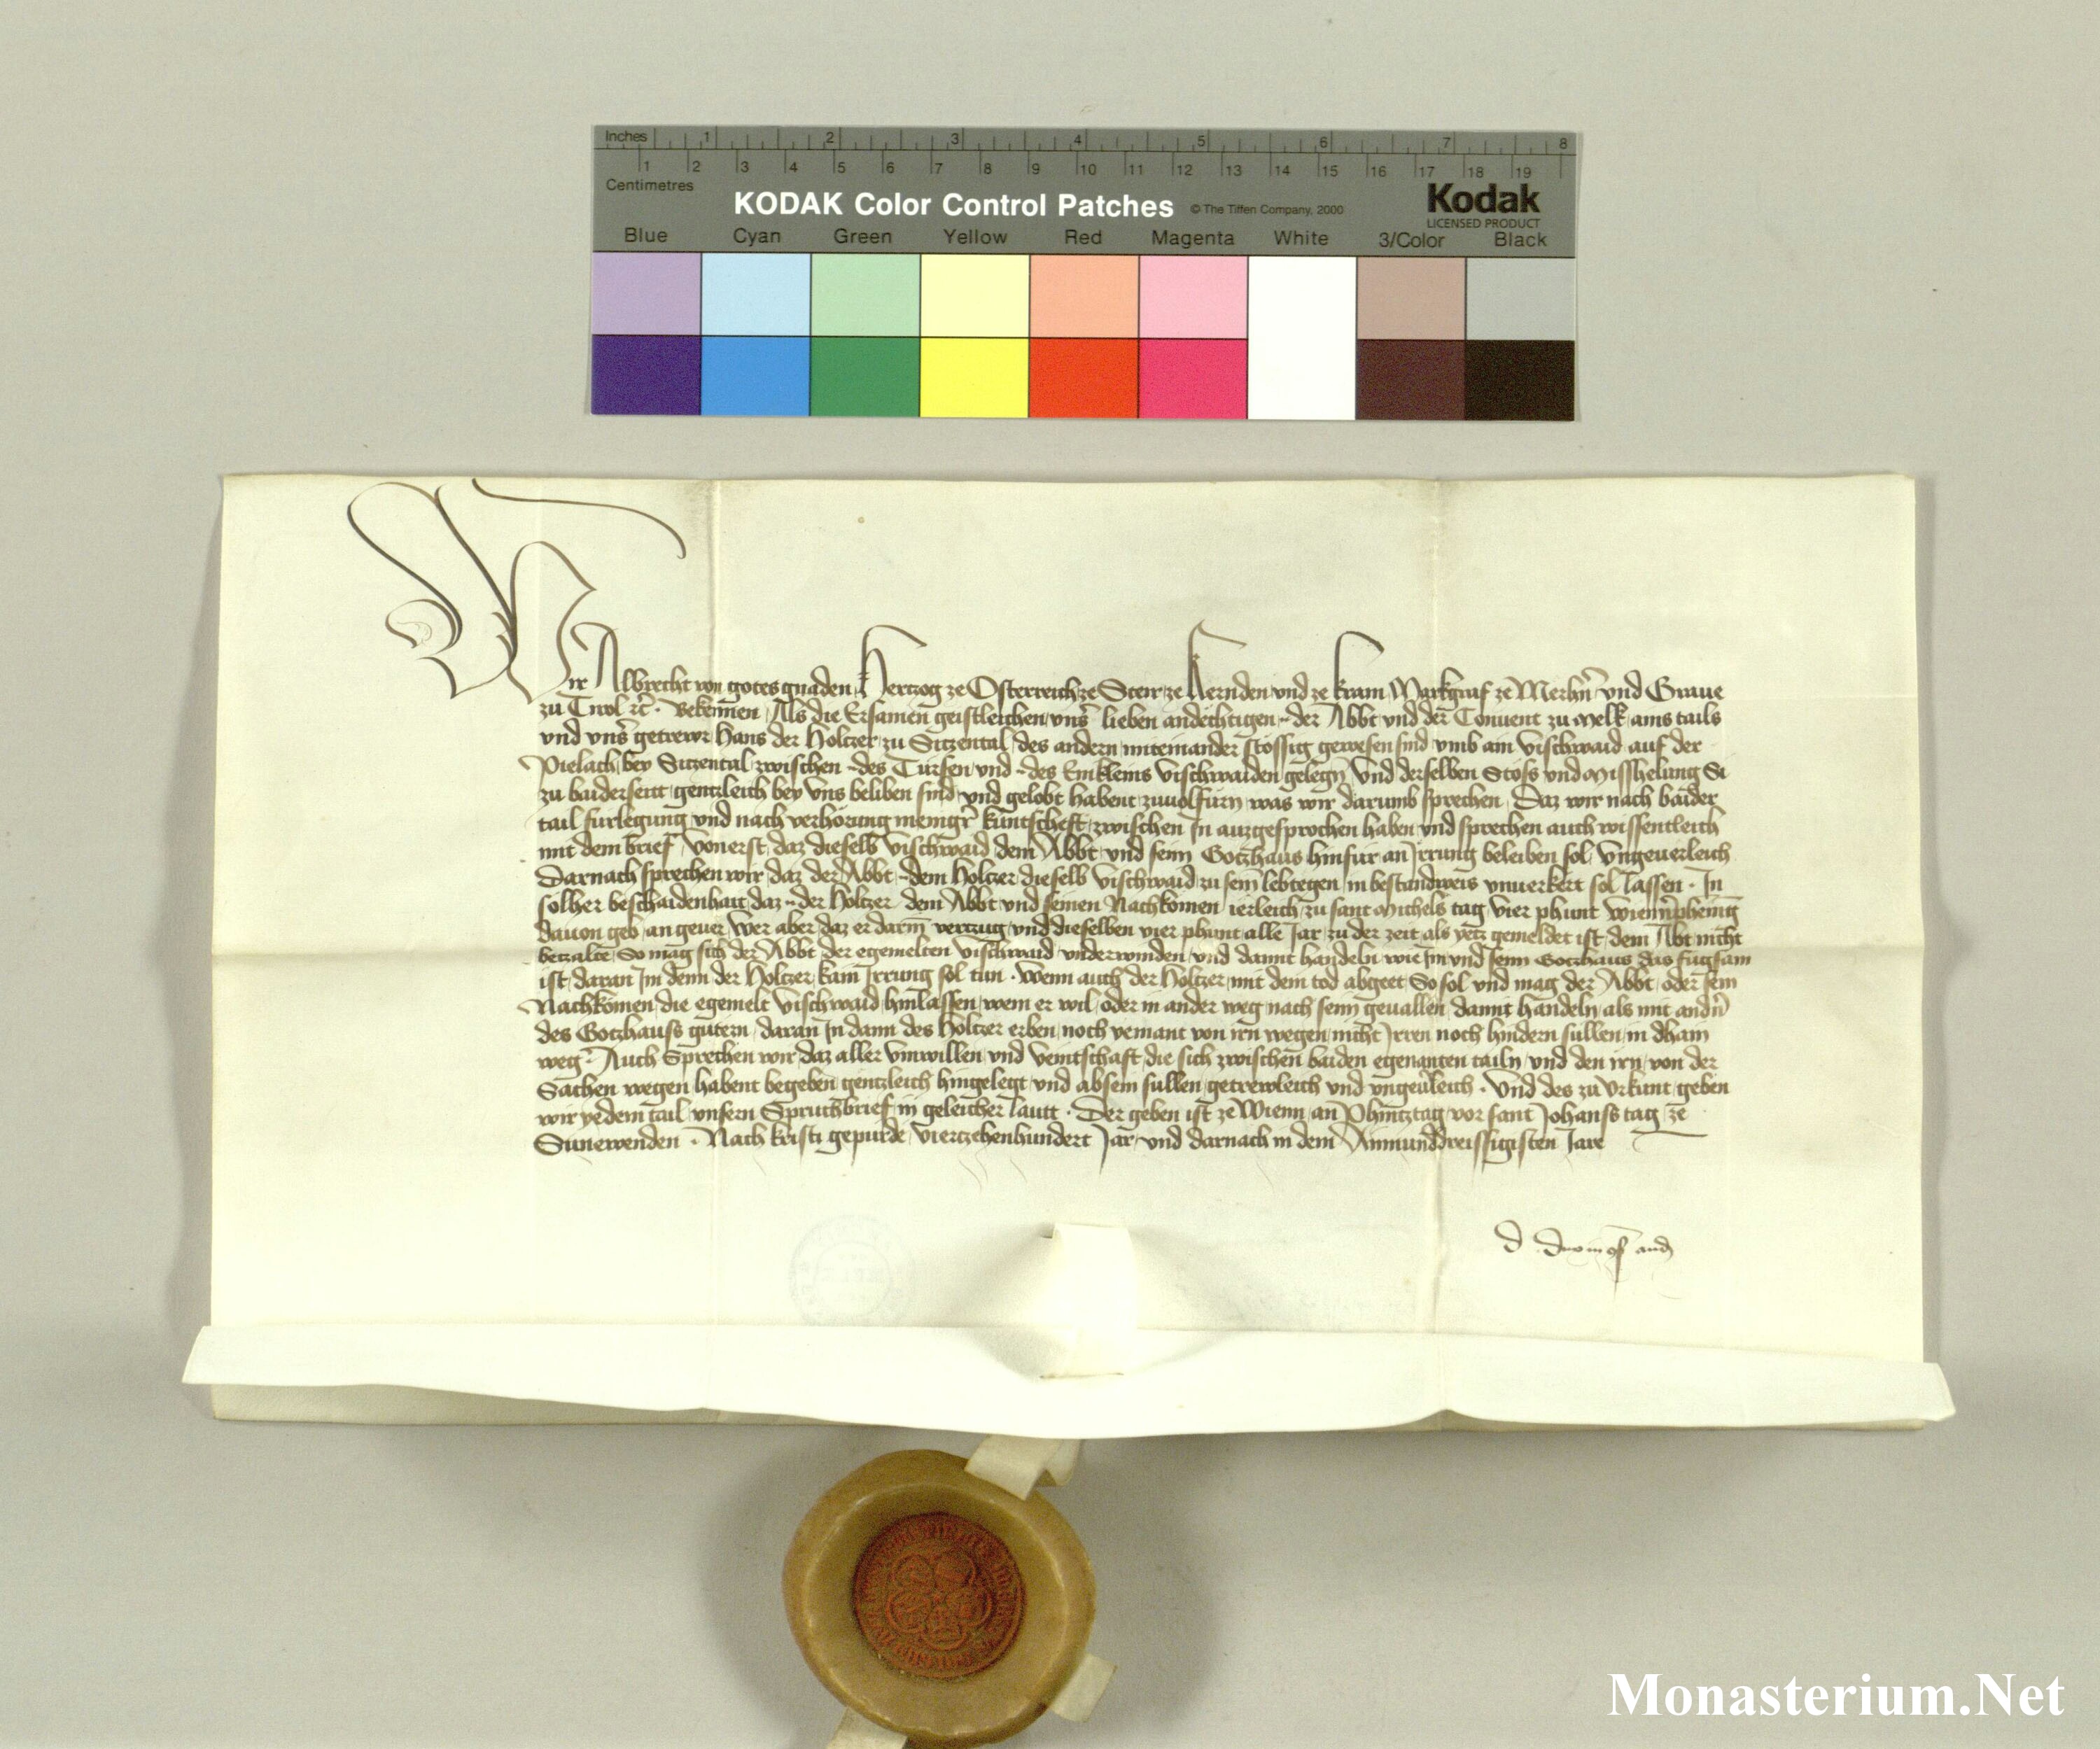 Inches 1 2 3 4 5 6 7 8
1 2 3 4 5 6 7 8 9 10 11 12 13 14 15 16 17 18 19
Centimetres
KODAK Color Control Patches © The Tiffen Company, 2000 Kodak
LICENSED PRODUCT
Blue Cyan Green Yellow Red Magenta White 3/Color Black
Wir Albrecht von gotes gnaden Hertzog ze Österreich ze Steir ze Kernden und ze Krain Markgraf ze Merhern̄ vnd Graue
zu Tirol ꝛc̄. Bekennen, Als die Ersamen geistleichen, vnsꝰ lieben andechtigen, der Abbt vnd der Conuent zu Melk, ains tails
vnd vnsꝰ getrewr Hans der Holtzer, zu Sitzental, des andern miteinander stossig gewesen sind vmb ain Vischwaid auf der
Pielach, bey Sitzental, zwischen des Türsen, vnd des Emkleins Vischwaiden gelegn̄, Vnd derselben Stoss vnd Misshelung Si
zu baiderseitt, gentzleich bey vns beliben sind, vnd gelobt habent zuuolfürn, was wir darumb sprechen, Daz wir nach baider
tail fürlegung vnd nach verhörung menigꝰ kuntscheft, zwischen In auzgesprochen haben vnd sprechen auch wissentleich
mit dem brief, Vonerst, daz dieselb Vischwaid, dem Abbt, vnd seim Gotzhaus hinfür an Irrung beleiben sol, Vngeuerleich
Darnach sprechen wir, daz der Abbt, dem Holtzer, dieselb Vischwaid, zu seim lebtegen, in bestandweis vnuerkert sol lassen. In
solher beschaidenhait, daz der Holtzer dem Abbt vnd seinen Nachkomen ierleich, zu sant Michels tag, Vier phunt Wiennꝰ phenīg
dauon geb, an geuer, Wer aber, daz er darin verczug, vnd dieselben vier phunt alle Jar, zu der zeit als yetz gemeldet ist, dem Abt nicht
betzalte, So mag sich der Abbt der egemelten Vischwaid vnderwinden, vnd damit handeln wie Im vnd seim Gotzhaus das fügsam
ist, daran Im denn der Holtzer, kain Irrung sol tun. Wenn auch der Holtzer, mit dem tod abgeet, So sol vnd mag der Abbt, oder sein
Nachkomen, die egemelt Vischwaid, hinlassen, wem er wil, oder in ander weg nach seim geuallen, damit handeln, als mit andn̄
des Gotzhauss gütern, daran In dann des Holtzer erben, noch yemant von irn wegen, nicht Irren noch hindern süllen, in dhain
weg. Auch Sprechen wir, daz aller Vnwillen vnd Veintschaft, die sich zwischen baiden egenanten tailn, vnd den irn, von der
Sachen wegen habent begeben, gentzleich hingelegt vnd absein süllen, getrewleich vnd vngeuꝰleich. Vnd des zu Vrkunt, geben
wir yedem tail, vnsern Spruchbrief, in geleicher lautt. Der geben ist ze Wienn, an Phintztag vor sant Johanss tag, ze
Sunewenden. Nach kristi gepurde, Viertzehenhundert Jar, vnd darnach in dem Ainunddreissigisten Jare
Monasterium.Net